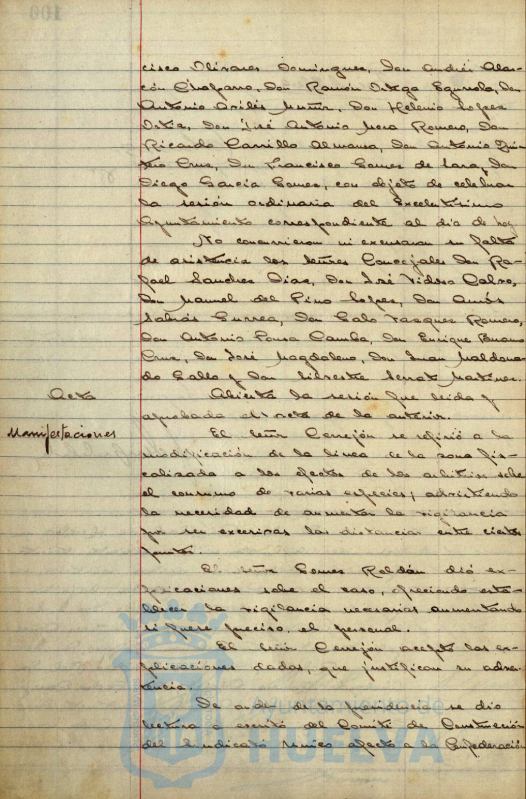 cisco Olivares Domínguez, Don Andrés Alar-
cón Chaparro, Don Ramón Ortega Egurrola, Don
Antonio Avilés Muñiz, Don Helenio Lopez
Ortiz, Don José Antonio Mora Romero, Don
Ricardo Carrillo Almansa, Don Antonio Quin-
tero Cruz, Don Francisco Gomez de Lara, Don
Diego García Gomez, con objeto de celebrar
la sesión ordinaria del Excelentísimo
Ayuntamiento correspondiente al día de hoy
No concurrieron ni excusaron su falta
de asistencia los señores Concejales Don Ra-
fael Sanchez Diaz, Don José Vidosa Calvo,
Don Manuel del Pino Lopez, Don Amós
Sabrás Gurrea, Don Galo Vazquez Romero,
Don Antonio Pousa Camba, Don Enrique Bueno
Cruz, Don José Magdaleno, Don Juan Maldona-
do Gallo y Don Silvestre Serrat Martinez.
Acta
Abierta la sesión fue leida y
aprobada el acta de la anterior.
Manifestaciones
El señor Cerrejón se refirió a la
modificación de la linea de la zona fis-
calizada a los efectos de los arbitrios sobre
el consumo de varias especies; advirtiendo
la necesidad de aumentar la vigilancia
por ser excesivas las distancias entre ciertos
puntos.
El señor Gomez Roldán dió ex-
plicaciones sobre el caso, ofreciendo esta-
blecer la vigilancia necesaria aumentando
si fuere preciso, el personal.
El señor Cerrejón acepta las ex-
plicaciones dadas, que justifican su adver-
tencia.
De orden de la presidencia se dió
lectura a escrito del Comité de Construcción
del Sindicato único afecto a la Confederación
HUELVA